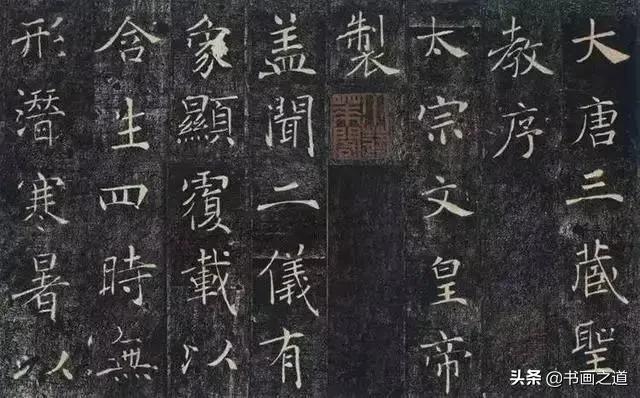 大唐三藏聖
教序
太宗文皇帝
製
蓋聞二儀有
象顯覆載以
含生四時無
形潛寒暑以
头条 @书画之道